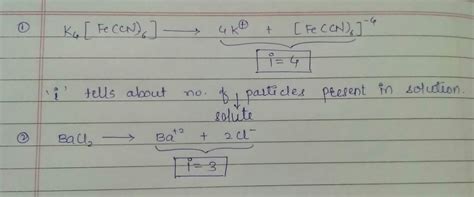 ① K₄[Fe(CN)₆] ⟶ 4K⊕ + [Fe(CN)₆]⁻⁴
i=4
'i' tells about no. of particles present in solution.
solute
② BaCl₂ ⟶ Ba⁺² + 2Cl⁻
i=3